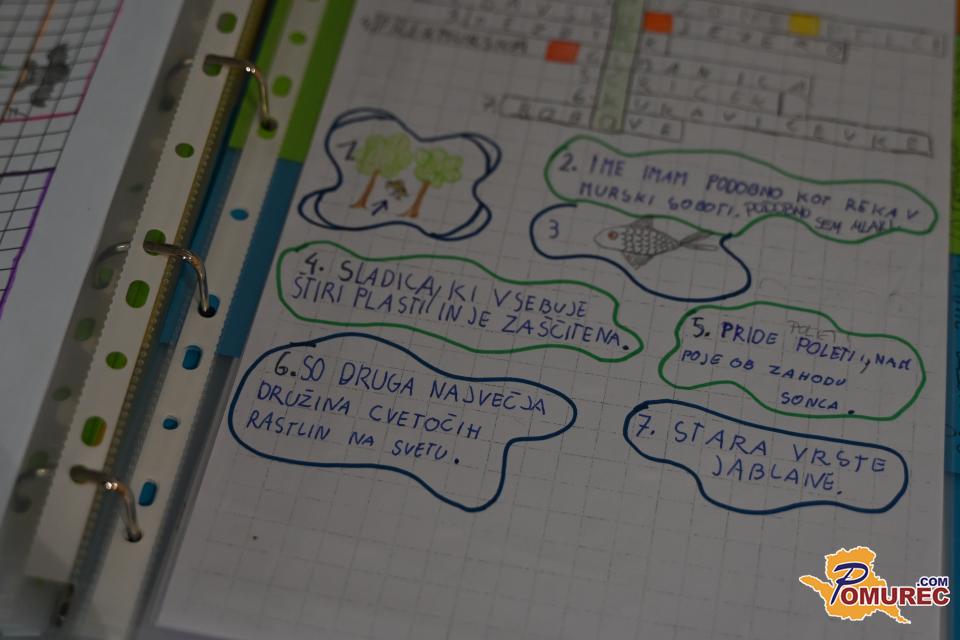 JEZERO
KUKAVIČEVKE
BOBOVE
1.
2. IME IMAM PODOBNO KOT REKA V
MURSKI SOBOTI. PODOBNO
SEM MLAKI.
3
4. SLADICA, KI VSEBUJE
ŠTIRI PLASTI IN JE ZAŠČITENA.
5. PRIDE POLETI, NAM
POJE OB ZAHODU
SONCA.
6. SO DRUGA NAJVEČJA
DRUŽINA CVETOČIH
RASTLIN NA SVETU.
7. STARA VRSTE
JABLANE.
POMUREC.COM